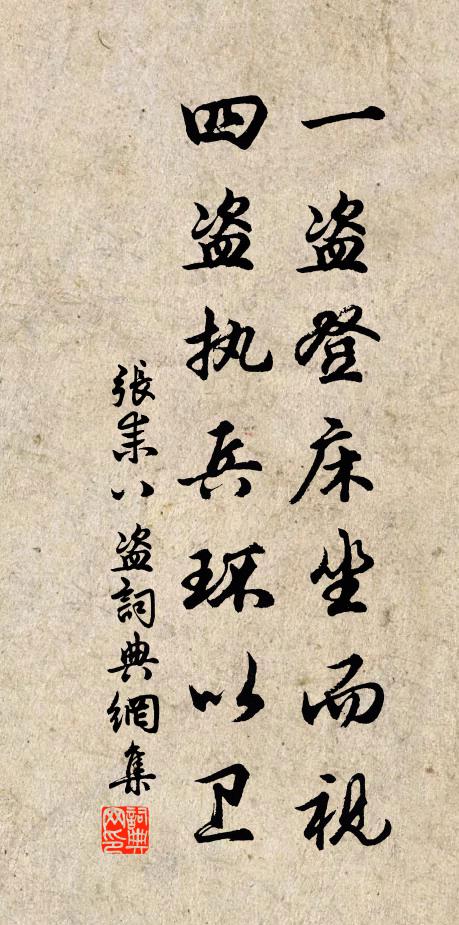 一盗登床坐而视
四盗执兵环以卫
張耒八盗詞典網集
詞典
网印